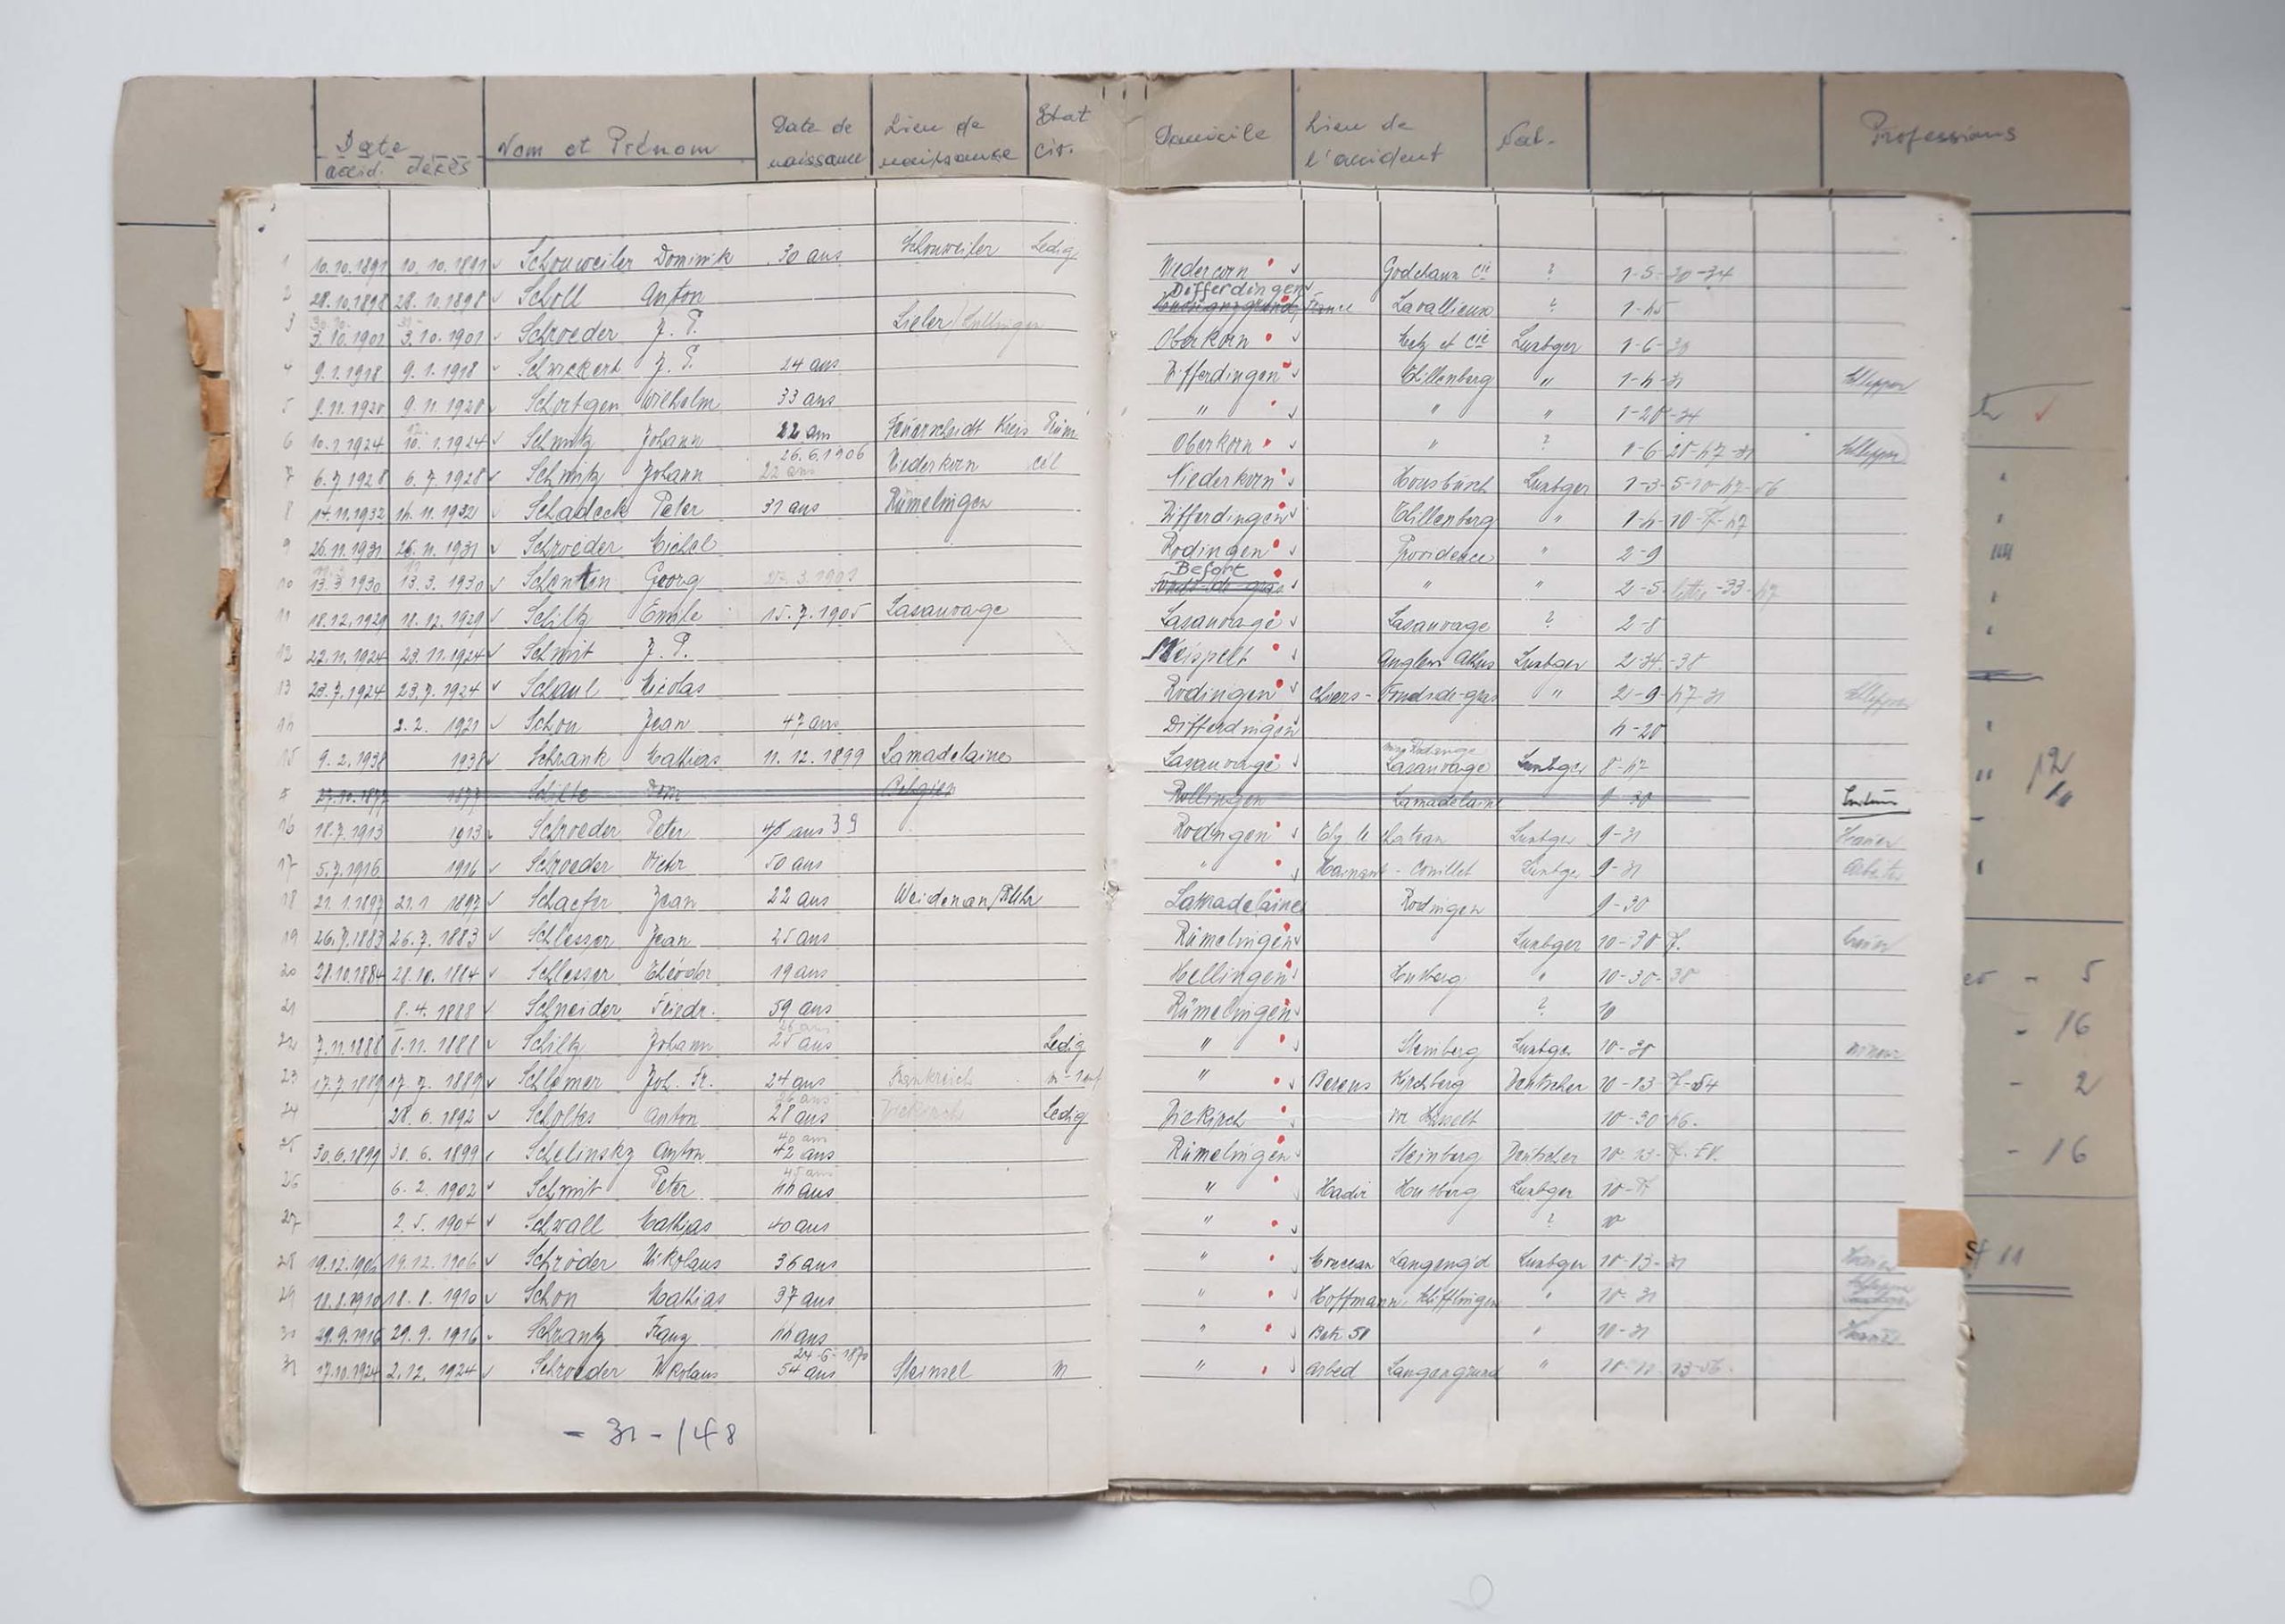 Date Nom et Prénom Date de naissance Lieu de naissance Etat civ. Domicile Lieu de l'accident Nat. Professions
accid. décès
1 10.10.1891 10.10.1891 Schouweiler Dominik 30 ans Schouweiler Ledig Niedercorn Godchaux Cie ? 1-5-20-34
2 28.10.1898 28.10.1898 Scholl Anton Differdingen France Lavallieux ?
3 3.10.1901 3.10.1901 Schroeder J. P. Lieler Oberkorn Metz et Cie Luxbger 1-6-30
4 9.1.1918 9.1.1918 Schwickert J. P. 24 ans Differdingen Thillenberg " 1-4-31 Schlepper
5 9.11.1920 9.11.1920 Schortgen Wilhelm 33 ans " " " 1-20-34
6 10.1.1924 10.1.1924 Schmitz Johann 22 ans Feuerscheidt Kreis Prüm Oberkorn " ? 1-6-20-47-31 Schlepper
7 6.7.1928 6.7.1928 Schmitz Johann 26.6.1906 22 ans Niederkorn cél Niederkorn Housbüsch Luxbger 1-3-5-10-47-56
8 14.11.1932 14.11.1932 Schadeck Peter 31 ans Rümelingen Differdingen Thillenberg " 1-4-10-F-47
9 26.11.1931 26.11.1931 Schroeder Michel Rodingen Providence " 2-9
10 13.3.1930 13.3.1930 Schantin Georg Befort " " 2-5 -33-47
11 18.12.1929 18.12.1929 Schiltz Emile 15.7.1905 Lasauvage Lasauvage Lasauvage ? 2-8
12 22.11.1924 23.11.1924 Schmit J. P. Meispelt Anglers Athus Luxbger 2-34-38
13 23.7.1924 23.7.1924 Schaul Nicolas Rodingen Chiers - Fond-de-gras " 2-9-47-31 Schlepper
14 2.2.1921 Schon Jean 47 ans Differdingen 4-20
15 9.2.1938 1938 Schrank Mathias 11.12.1899 Lamadelaine Lasauvage Lasauvage Luxbger 8-47
27.10.1877 1877 Schilte Dom Belgien Rollingen Lamadelaine 9-30
16 18.7.1913 1913 Schroeder Peter ans 39 Rodingen Luxbger 9-31 Hauer
17 5.7.1916 1916 Schroeder Victor 50 ans " - Couillet Luxbger 9-31
18 21.1.1897 21.1 1897 Schaefer Jean 22 ans Weidenau/Ruhr Lamadelaine Rodingen 9-30
19 26.7.1883 26.7.1883 Schlesser Jean 25 ans Rümelingen Luxbger 10-30 F.
20 28.10.1884 28.10.1884 Schlesser Théodor 19 ans Hellingen Hutberg " 10-30-38
21 8.4.1888 Schneider Friedr. 59 ans Rümelingen ? 10
22 7.11.1888 8.11.1888 Schiltz Johann 26 ans 25 ans Ledig " Steinberg Luxbger 10-30 mineur
23 17.7.1889 17.7.1889 Schlemer Joh. Fr. 24 ans Frankreich " Berens Kirchberg Deutscher 10-13-F-54
24 28.6.1892 Scholtes Anton 26 ans 28 ans Diekirch Ledig Diekirch 10-30-46.
25 30.6.1899 30.6.1899 Schelinsky Anton 40 ans 42 ans Rümelingen Steinberg Deutscher 10-13-F-54.
26 6.2.1902 Schmit Peter 45 ans 44 ans " Hadir Hutberg Luxbger 10-F
27 2.5.1904 Schwall Mathias 40 ans " ? 10
28 19.12.1906 19.12.1906 Schröder Nikolaus 36 ans " Langeng'd Luxbger 10-13-31 Hauer
29 18.8.1910 18.8.1910 Schon Mathias 37 ans " Hoffmann, " 10-31
30 29.9.1916 29.9.1916 Schrantz Franz 44 ans " Betr 51 " 10-31
31 17.10.1924 2.12.1924 Schroeder Nikolaus 24-6-1870 54 ans Steinsel m " Arbed Langengrund " 10-11-13-56.
- 31 - 148
12
- 5
- 16
- 2
- 16
11